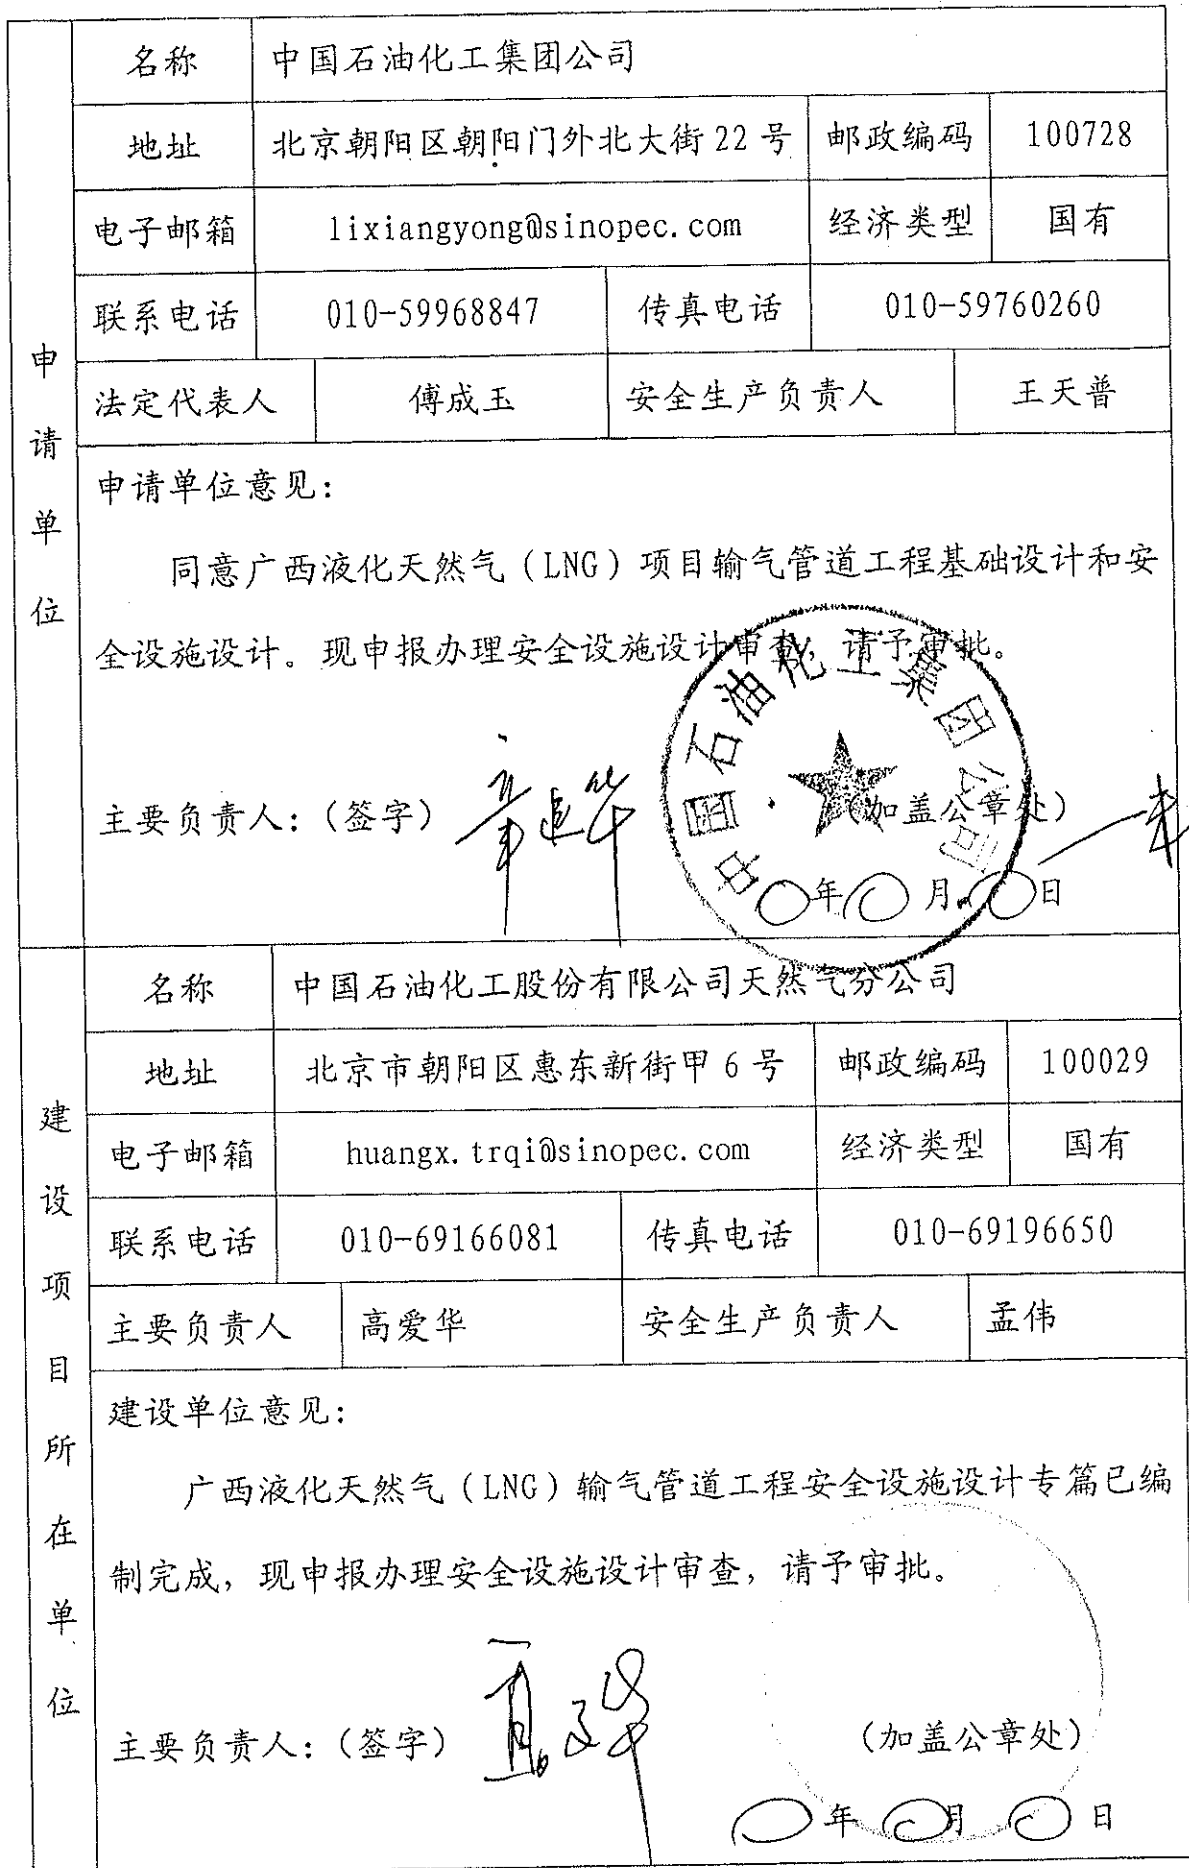 申请单位
名称 中国石油化工集团公司
地址 北京朝阳区朝阳门外北大街22号 邮政编码 100728
电子邮箱 lixiangyong@sinopec.com 经济类型 国有
联系电话 010-59968847 传真电话 010-59760260
法定代表人 傅成玉 安全生产负责人 王天普
申请单位意见：
同意广西液化天然气（LNG）项目输气管道工程基础设计和安
全设施设计。现申报办理安全设施设计审查，请予审批。
中国石油化工集团公司
主要负责人：（签字） （加盖公章处）
年 月 日
建设项目所在单位
名称 中国石油化工股份有限公司天然气分公司
地址 北京市朝阳区惠东新街甲6号 邮政编码 100029
电子邮箱 huangx.trqi@sinopec.com 经济类型 国有
联系电话 010-69166081 传真电话 010-69196650
主要负责人 高爱华 安全生产负责人 孟伟
建设单位意见：
广西液化天然气（LNG）输气管道工程安全设施设计专篇已编
制完成，现申报办理安全设施设计审查，请予审批。
主要负责人：（签字） （加盖公章处）
年 月 日